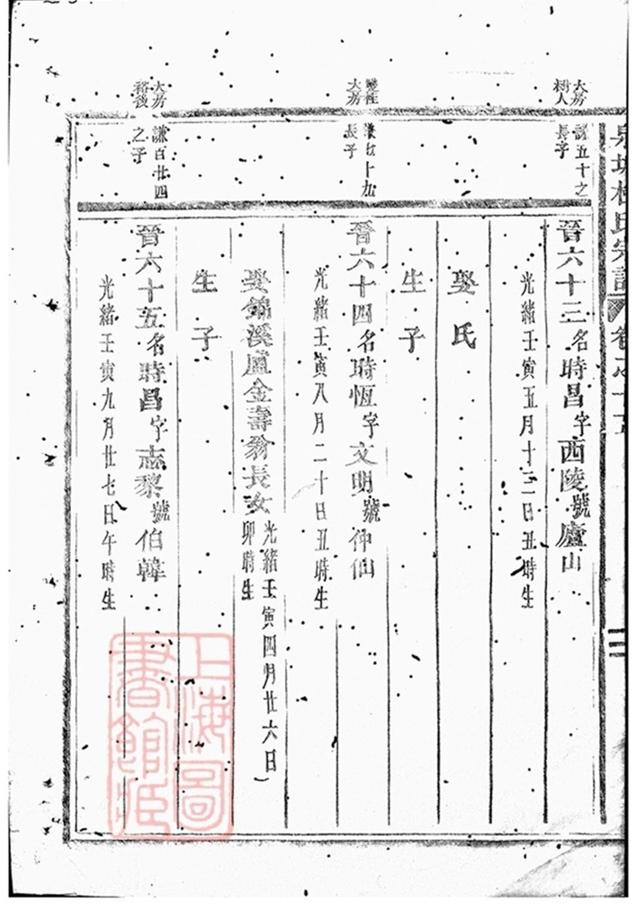 大房
樹人
謙五十之
長子
晉六十三名時昌字西陵號廬山
光緒壬寅五月十三日丑時生
娶氏
生子
大房
長子
晉六十四名時恆字文明號仲仙
光緒壬寅八月二十日丑時生
娶錦溪盧金壽翁長女
光緒壬寅四月廿六日
卯時生
生子
大房
裕後
謙百廿四
之子
晉六十五名時昌字志黎號伯韓
光緒壬寅九月廿七日午時生
上海圖
書館藏